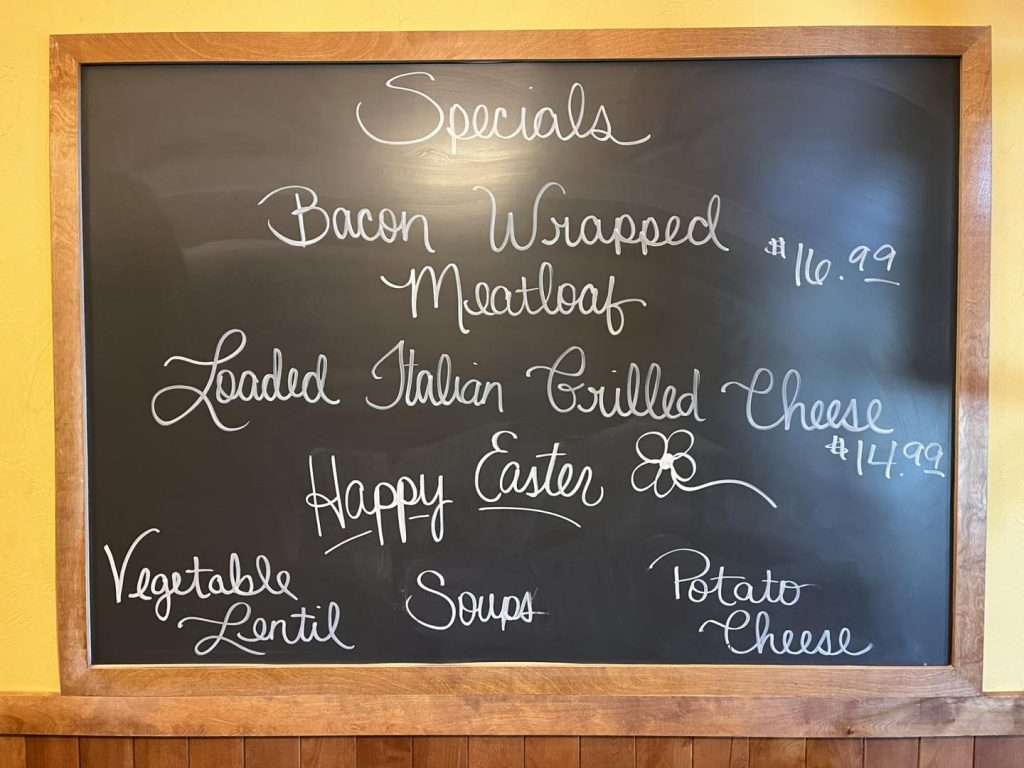 Specials
Bacon Wrapped
Meatloaf $16.99
Loaded Italian Grilled Cheese
$14.99
Happy Easter
Vegetable
Lentil
Soups
Potato
Cheese